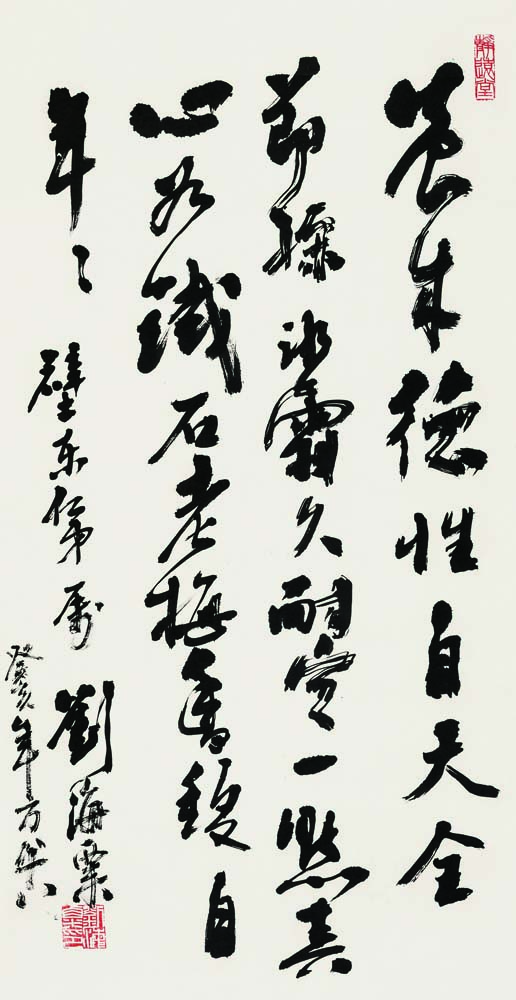 养来德性自天全
節操冰霜久耐寒一點真
心如鐵石老梅香馥自
年々
璧東仁弟屬
劉海粟
癸亥年方